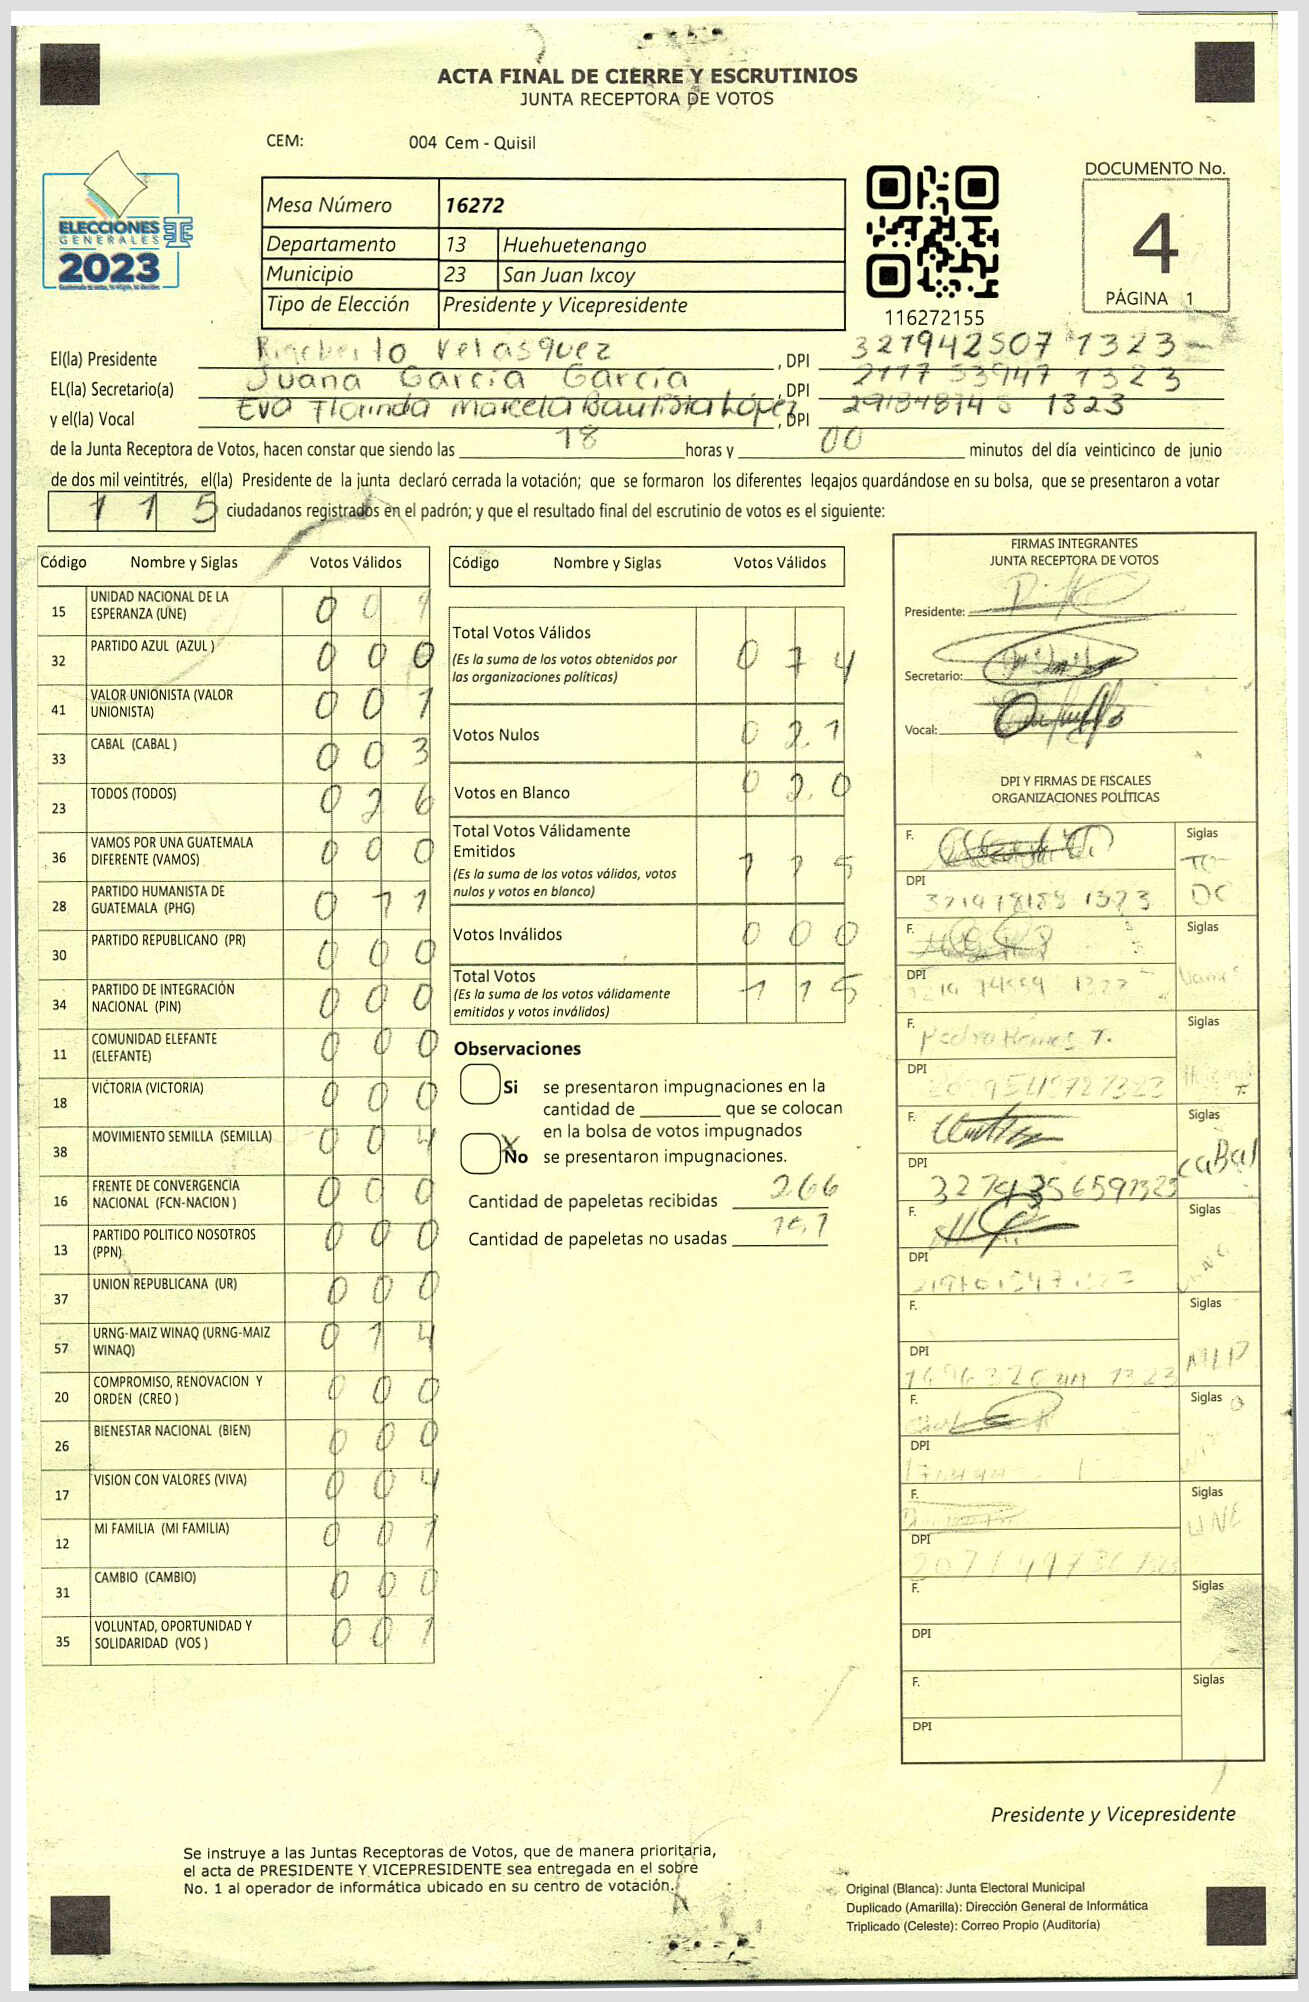 ACTA FINAL DE CIERRE Y ESCRUTINIOS
JUNTA RECEPTORA DE VOTOS
CEM: 004 Cem - Quisil
ELECCIONES
GENERALES
2023
Mesa Número 16272
Departamento 13 Huehuetenango
Municipio 23 San Juan Ixcoy
Tipo de Elección Presidente y Vicepresidente
116272155
DOCUMENTO No.
4
PÁGINA 1
El(la) Presidente Rigoberto Velasquez , DPI 321942507 1323
EL(la) Secretario(a) Juana García García , DPI 2117 53947 1323
y el(la) Vocal Eva Florinda Marcela Bautista López , DPI 1323
de la Junta Receptora de Votos, hacen constar que siendo las 18 horas y 00 minutos del día veinticinco de junio
de dos mil veintitrés, el(la) Presidente de la junta declaró cerrada la votación; que se formaron los diferentes legajos guardándose en su bolsa, que se presentaron a votar
115 ciudadanos registrados en el padrón; y que el resultado final del escrutinio de votos es el siguiente:
Código Nombre y Siglas Votos Válidos
15 UNIDAD NACIONAL DE LA ESPERANZA (UNE) 0 0 9
32 PARTIDO AZUL (AZUL ) 0 0 0
41 VALOR UNIONISTA (VALOR UNIONISTA) 0 0 1
33 CABAL (CABAL ) 0 0 3
23 TODOS (TODOS) 0 2 6
36 VAMOS POR UNA GUATEMALA DIFERENTE (VAMOS) 0 0 0
28 PARTIDO HUMANISTA DE GUATEMALA (PHG) 0 1 1
30 PARTIDO REPUBLICANO (PR) 0 0 0
34 PARTIDO DE INTEGRACIÓN NACIONAL (PIN) 0 0 0
11 COMUNIDAD ELEFANTE (ELEFANTE) 0 0 0
18 VICTORIA (VICTORIA) 0 0 0
38 MOVIMIENTO SEMILLA (SEMILLA) 0 0 4
16 FRENTE DE CONVERGENCIA NACIONAL (FCN-NACION ) 0 0 0
13 PARTIDO POLITICO NOSOTROS (PPN) 0 0 0
37 UNION REPUBLICANA (UR) 0 0 0
57 URNG-MAIZ WINAQ (URNG-MAIZ WINAQ) 0 1 4
20 COMPROMISO, RENOVACION Y ORDEN (CREO ) 0 0 0
26 BIENESTAR NACIONAL (BIEN) 0 0 0
17 VISION CON VALORES (VIVA) 0 0 4
12 MI FAMILIA (MI FAMILIA) 0 0 1
31 CAMBIO (CAMBIO) 0 0 0
35 VOLUNTAD, OPORTUNIDAD Y SOLIDARIDAD (VOS ) 0 0 1
Código Nombre y Siglas Votos Válidos
Total Votos Válidos 0 7 4
(Es la suma de los votos obtenidos por
las organizaciones políticas)
Votos Nulos 0 2 1
Votos en Blanco 0 2 0
Total Votos Válidamente
Emitidos 1 1 5
(Es la suma de los votos válidos, votos
nulos y votos en blanco)
Votos Inválidos 0 0 0
Total Votos 1 1 5
(Es la suma de los votos válidamente
emitidos y votos inválidos)
Observaciones
Si se presentaron impugnaciones en la
cantidad de ________ que se colocan
en la bolsa de votos impugnados
X
No se presentaron impugnaciones.
Cantidad de papeletas recibidas 266
Cantidad de papeletas no usadas
FIRMAS INTEGRANTES
JUNTA RECEPTORA DE VOTOS
Presidente:
Secretario:
Vocal:
DPI Y FIRMAS DE FISCALES
ORGANIZACIONES POLÍTICAS
F. Siglas
DPI 1323
F. Siglas
DPI
F. Pedro Ramos T. Siglas
DPI
F. Siglas CaBal
DPI
F. Siglas
DPI
F. Siglas MLP
DPI 1323
F. Siglas
DPI
F. Siglas UNE
DPI
F. Siglas
DPI
F. Siglas
DPI
Presidente y Vicepresidente
Se instruye a las Juntas Receptoras de Votos, que de manera prioritaria,
el acta de PRESIDENTE Y VICEPRESIDENTE sea entregada en el sobre
No. 1 al operador de informática ubicado en su centro de votación.
Original (Blanca): Junta Electoral Municipal
Duplicado (Amarilla): Dirección General de Informática
Triplicado (Celeste): Correo Propio (Auditoría)